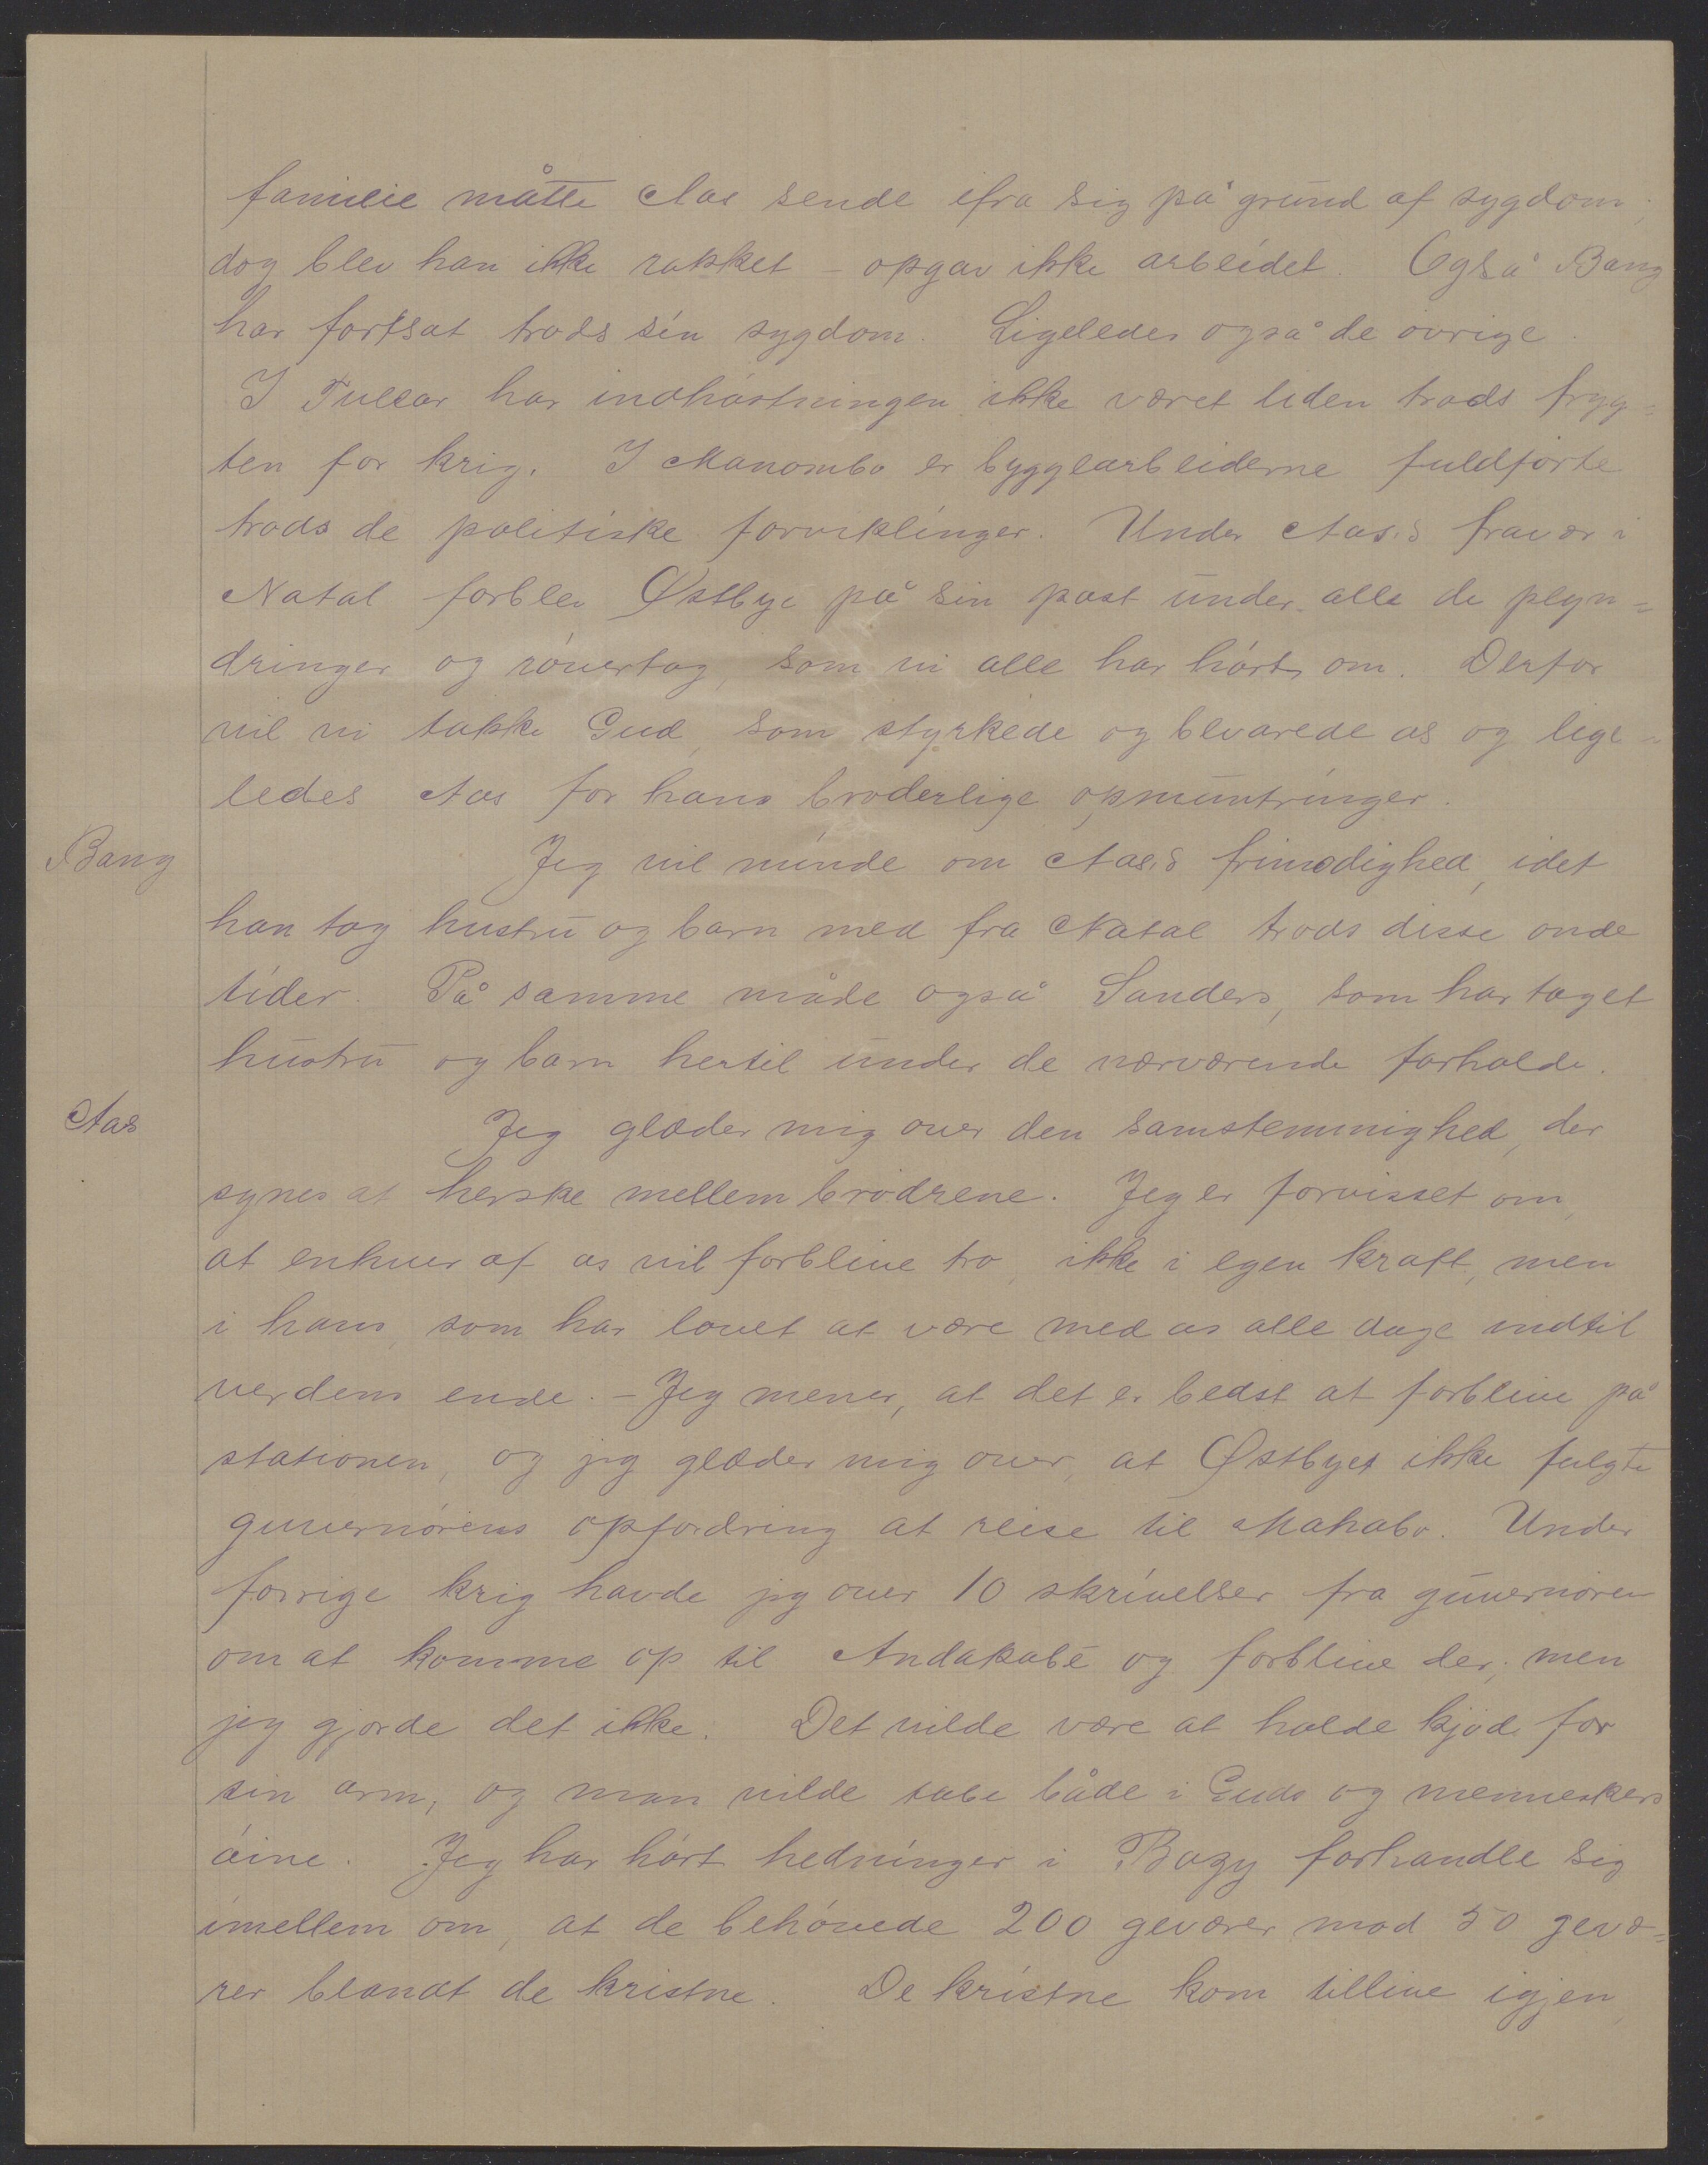 familie måtte Aas sende ifra sig på grund af sygdom;
dog blev han ikke rokket – opgav ikke arbeidet. Også Bang
har fortsat trods sin sygdom. Ligeledes også de øvrige.
I Tullear har indhøstningen ikke været liden trods fryg=
ten for krig. I Manombo er byggearbeiderne fuldførte
trods de politiske forviklinger. Under Aas's fravær i
Natal forblev Østbye på sin post under alle de plyn=
dringer og røvertog, som vi alle har hørt om. Derfor
vil vi takke Gud, som styrkede og bevarede os og lige=
ledes Aas for hans broderlige opmuntringer.
Bang Jeg vil minde om Aas's frimodighed, idet
han tog hustru og barn med fra Natal trods disse onde
tider. På samme måde også Sanders, som har taget
hustru og barn hertil under de nærværende forholde.
Aas Jeg glæder mig over den samstemmighed, der
synes at herske mellem brødrene. Jeg er forvisset om,
at enhver af os vil forblive tro, ikke i egen kraft, men
i hans, som har lovet at være med os alle dage indtil
verdens ende. – Jeg mener, at det er bedst at forblive på
stationen, og jeg glæder mig over, at Østbyes ikke fulgte
guvernørens opfordring at reise til Mahabo. Under
forrige krig havde jeg over 10 skrivelser fra guvernøren
om at komme op til Andakabe og forblive der; men
jeg gjorde det ikke. Det vilde være at holde kjød for
sin arm, og man vilde tabe både i Guds og menneskers
øine. Jeg har hørt hedninger i Bazy forhandle sig
imellem om, at de behøvede 200 geværer mod 50 gevæ=
rer blandt de kristne. De kristne kom tillive igjen,